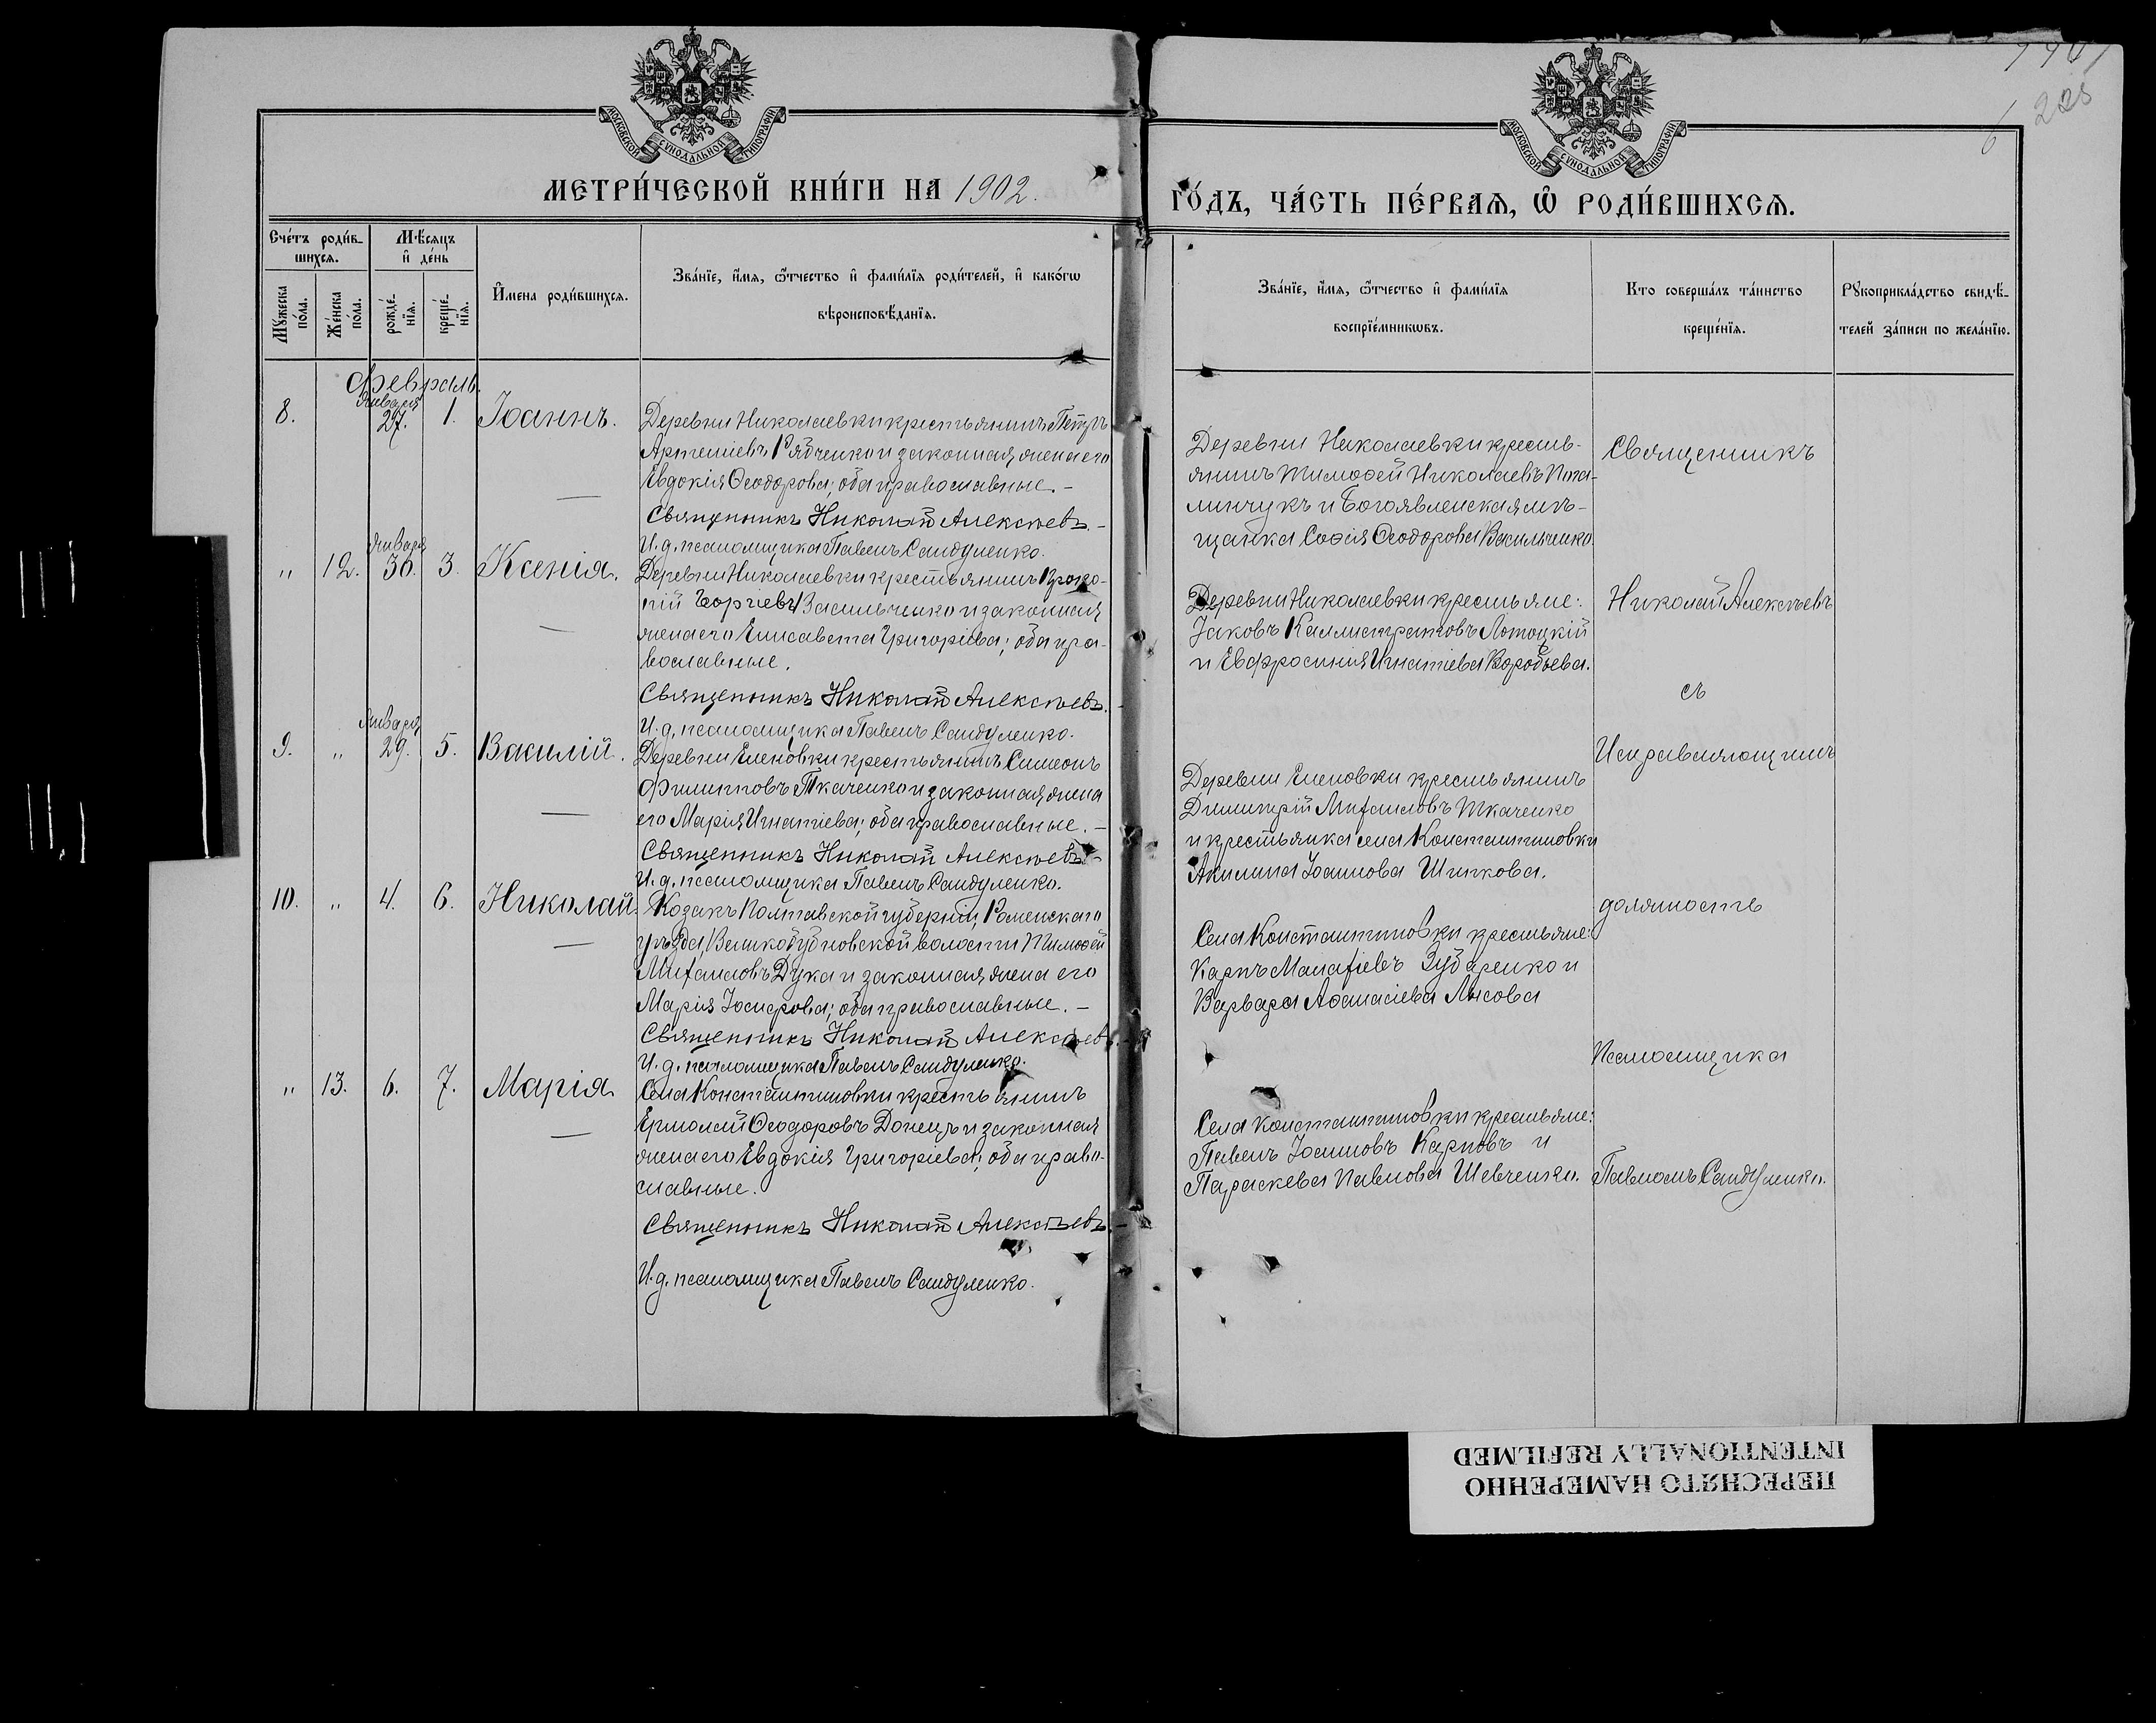 МОСКОВСКОЙ СѴНОДАЛЬНОЙ ТИПОГРАФІИ
МЕТРИ́ЧЕСКОЙ КНИ́ГИ НА 1902.
Сче́тъ роди́в-
шихсѧ.
Мꙋ́жеска по́ла.
Же́нска по́ла.
Мѣ́сѧцъ и҆ де́нь
рожде́-
нїѧ.
креще́-
нїѧ.
И҆́мена роди́вшихсѧ.
Зва́нїе, и҆́мѧ, ѻ҆́тчество и҆ фами́лїѧ роди́телей, и҆ како́гѡ
вѣроисповѣ́данїѧ.
Февраль.
8.
Января
27.
1.
Іоаннъ.
Деревни Николаевки крестьянинъ Петръ
Артеміевъ Рябченко и законная жена его
Евдокія Ѳеодорова; оба православные. –
Священникъ Николай Алексѣевъ. –
И. д. псаломщика Павелъ Сандуленко.
„ 12.
Января
30.
3.
Ксенія.
Деревни Николаевки крестьянинъ Проко-
пій Георгіевъ Васильченко и законная
жена его Елисавета Григоріева; оба пра-
вославные.
Священникъ Николай Алексѣевъ.
И. д. псаломщика Павелъ Сандуленко.
9. „
Января
29.
5.
Василій.
Деревни Еленовки крестьянинъ Симеонъ
Филипповъ Ткаченко и законная жена
его Марія Игнатіева; оба православные. –
Священникъ Николай Алексѣевъ. –
И. д. псаломщика Павелъ Сандуленко.
10. „ 4. 6. Николай.
Козакъ Полтавской губерніи, Роменскаго
уѣзда, Великобубновской волости Тимоѳей
Михаиловъ Дука и законная жена его
Марія Іосифова; оба православные. –
Священникъ Николай Алексѣевъ. –
И. д. псаломщика Павелъ Сандуленко.
„ 13. 6. 7. Марія
Села Константиновки крестьянинъ
Ермолай Ѳеодоровъ Донецъ и законная
жена его Евдокія Григоріева; оба право-
славные.
Священникъ Николай Алексѣевъ. –
И. д. псаломщика Павелъ Сандуленко.
МОСКОВСКОЙ СѴНОДАЛЬНОЙ ТИПОГРАФІИ
ГО́ДЪ, ЧА́СТЬ ПЕ́РВАѦ, Ѡ҆ РОДИ́ВШИХСѦ.
Зва́нїе, и҆́мѧ, ѻ҆́тчество и҆ фами́лїѧ
воспрїе́мникѡвъ.
Кто соверша́лъ та́инство
креще́нїѧ.
Рꙋкоприкла́дство свидѣ́-
телей за́писи по жела́нїю.
Деревни Николаевки кресть-
янинъ Тимоѳей Николаевъ
и Богоявленская мѣ-
щанка Софія Ѳеодорова Васильченко.
Деревни Николаевки крестьяне:
Іаковъ Каллистратовъ Лотоцкій
и Евфросинія Игнатіева Воробьева.
Деревни Еленовки крестьянинъ
Димитрій Михаиловъ Ткаченко
и крестьянка села Константиновки
Акилина Іоаннова Шипкова.
Села Константиновки крестьяне:
Карпъ Малафіевъ Зубаренко и
Варвара Аѳанасіева Лысова
Села Константиновки крестьяне:
Павелъ Іоанновъ Карповъ и
Параскева Павлова Шевченко.
Священникъ
Николай Алексѣевъ
съ
Исправляющимъ
должность
Псаломщика
Павломъ Сандуленко.
ПЕРЕСНЯТО НАМЕРЕННО
INTENTIONALLY REFILMED